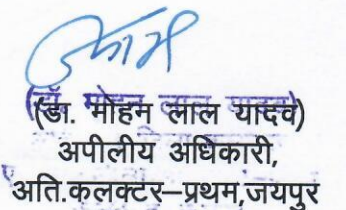 (डॉ. मोहन लाल यादव)
अपीलीय अधिकारी,
अति.कलक्टर–प्रथम,जयपुर